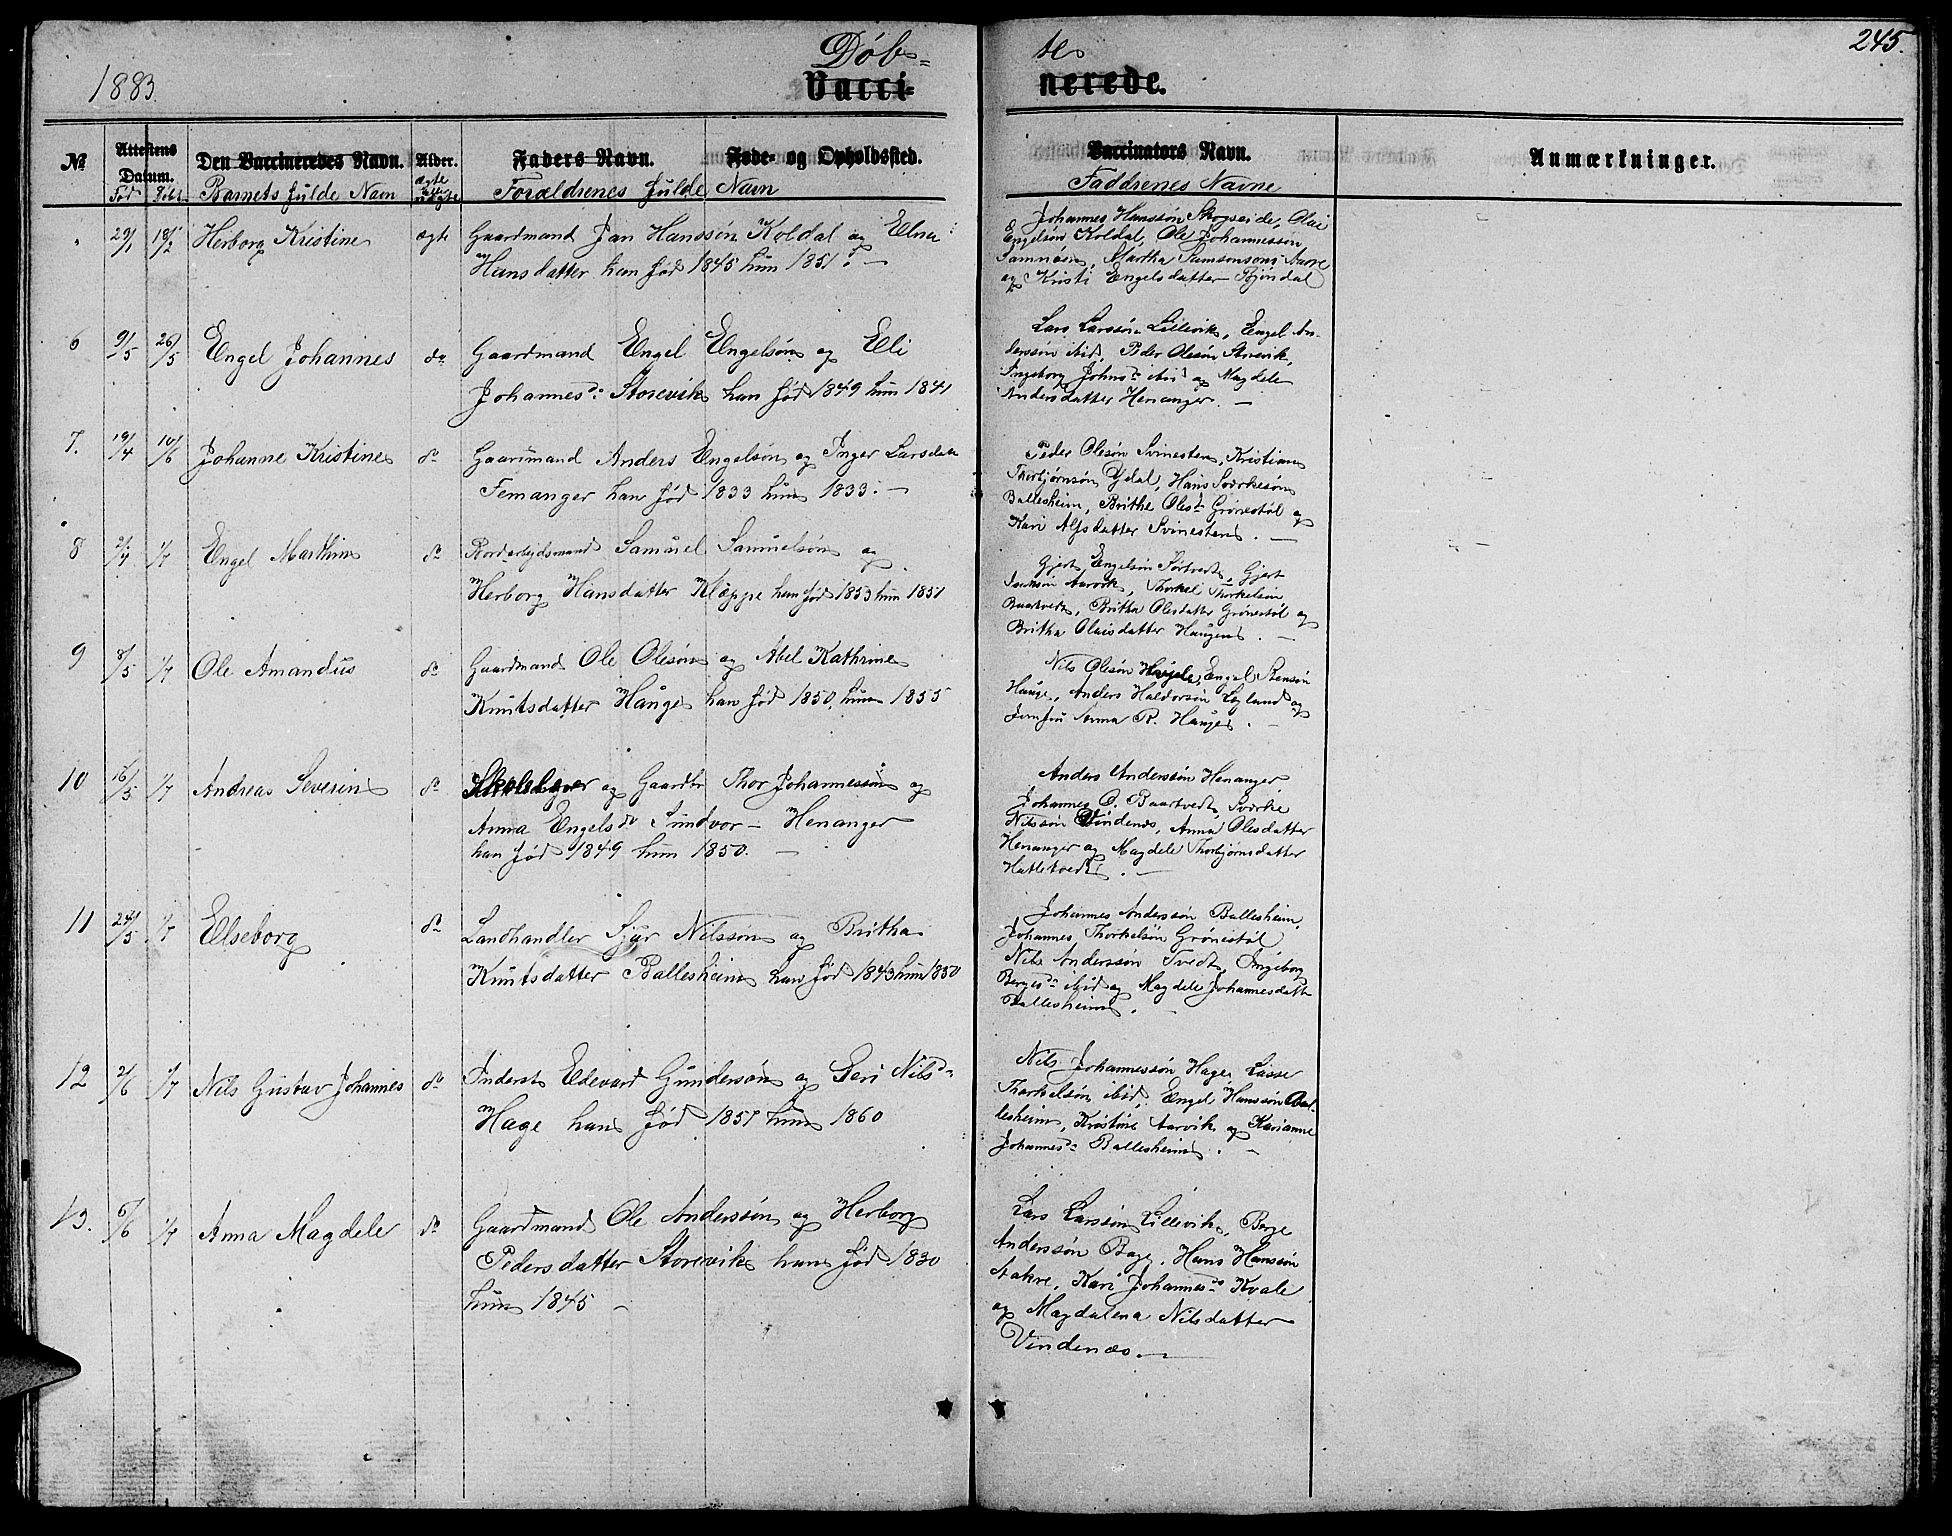 1883.
Døb=
te
245.
Vacci=
nerede.
№
Attestens Datum.
Den Vaccineredes Navn.
Alder.
Faders Navn.
Føde- og Opholdssted.
Vaccinators Navn.
Anmærkninger.
Fød
Døbt
Barnets fulde Navn
ægte
uægte
Forældrenes fulde Navn
Faddrenes Navne
29/1 18/2 Herborg Kristine ægte Gaardmand Jan Hanssøn Koldal og Elna
Hansdatter han fød 1845 hun 1851. —
Johannes Hanssøn Skogseide, Olai
Engelsøn Koldal, Ole Johannessøn
Samnøen, Martha Samsonsdtr Aarre
og Kristi Engelsdatter Bjøndal
6 9/5 26/5 Engel Johannes do Gaardmand Engel Engelsøn og Eli
Johannesd: Storevik han fød 1849 hun 1841
Lars Larssøn Lillevik, Engel An-
derssøn ibid, Peder Olesøn Storevik,
Ingeborg Johnsd: ibid og Magdele
Andersdatter Henanger. —
7. 19/4 10/6 Johanne Kristine do Gaardmand Anders Engelsøn og Inger Larsdatter
Femanger han fød 1833 hun 1833. —
Peder Olesøn Svinesten, Kristian
Thorbjørnsøn Ydal, Hans Sværkesøn
Ballesheim, Brithe Olesd: Grønestøl og
Kari Alfsdatter Svinesten. —
8 2/4 1/7 Engel Marthin do Jordarbejdsmand Samuel Samuelsøn og
Herborg Hansdatter Kleppe han fød 1853 hun 1851
Gjert Engelsøn Sørtvedt, Gjert
Aarvik, Thorkel Thorkelsøn
Baartvedt, Britha Olesdatter Grønestøl og
Britha Olaisdatter Haugen. —
9 8/5 1/7 Ole Amandus do Gaardmand Ole Olesøn og Abel Kathrine
Knutsdatter Hauge han fød 1850, hun 1855
Nils Olesøn Engel Stensøn
Hauge, Anders Haldorsøn Lygland og
Jomfru Anna R. Hauge. —
10 16/5 1/7 Andreas Severin do Skolelærer og Gaardbr Thor Johannessøn og
Anna Engelsdr Sundvor — Henanger
han fød 1849 hun 1850. —
Anders Anderssøn Henanger,
Johannes O. Baartvedt, Sværke
Nilssøn Vindenes, Anna Olesdatter
Henanger og Magdele Thorbjørnsdatter
Hatletvedt. —
11 24/5 1/7 Elseborg do Landhandler Sjur Nilssøn og Britha
Knutsdatter Ballesheim han fød 1843 hun 1850
Johannes Anderssøn Ballesheim,
Johannes Thorkelsøn Grønestøl,
Nils Anderssøn Tvedt, Ingeborg
Bergesd: ibid og Magdele Johannesdatt
Ballesheim. —
12 2/6 1/7 Nils Gustav Johannes do Inderst Edevard Gunderssøn og Geri Nilsd:
Hage han fød 1857 hun 1860
Nils Johannessøn Hage, Lasse
Thorkelsøn ibid, Engel Hanssøn Bal-
lesheim, Kristine Aarvik og Karianne
Johannesd: Ballesheim. —
13. 6/6 1/7 Anna Magdele do Gaardmand Ole Anderssøn og Herborg
Pedersdatter Storevik han fød 1830
hun 1845 —
Lars Larssøn Lillevik, Berge
Anderssøn Bage, Hans Hanssøn
Aakre, Kari Johannesd: Kvale
og Magdalena Nilsdatter
Vindenæs. —